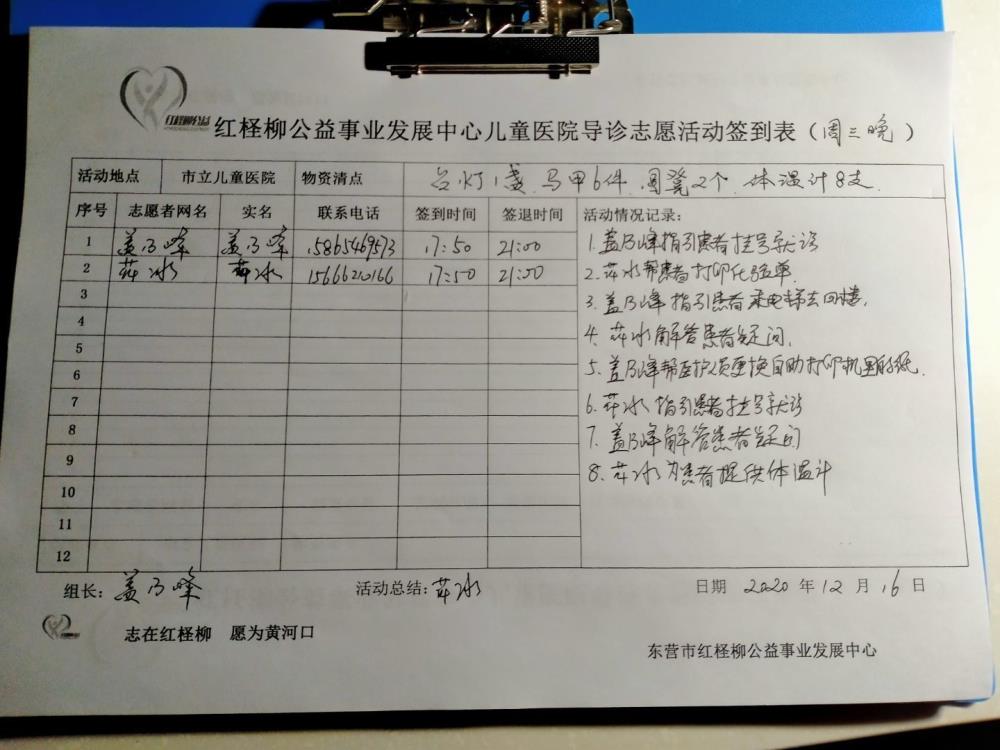 红柽柳公益
红柽柳公益事业发展中心儿童医院导诊志愿活动签到表（周三晚）
活动地点 市立儿童医院 物资清点 台灯1盏 马甲6件 圆凳2个 体温计8支
序号 志愿者网名 实名 联系电话 签到时间 签退时间 活动情况记录：
1 盖乃峰 盖乃峰 15865469573 17:50 21:00
2 萍水 萍水 15666210166 17:50 21:00
3
4
5
6
7
8
9
10
11
12
1.盖乃峰指引患者挂号就诊
2.萍水帮患者打印化验单
3.盖乃峰指引患者乘电梯去四楼.
4.萍水解答患者疑问.
5.盖乃峰帮医护人员更换自助打印机里的纸.
6.萍水指引患者挂号就诊
7.盖乃峰解答患者疑问
8.萍水为患者提供体温计
组长：盖乃峰 活动总结：萍水 日期 2020 年 12 月 16 日
志在红柽柳 愿为黄河口
东营市红柽柳公益事业发展中心